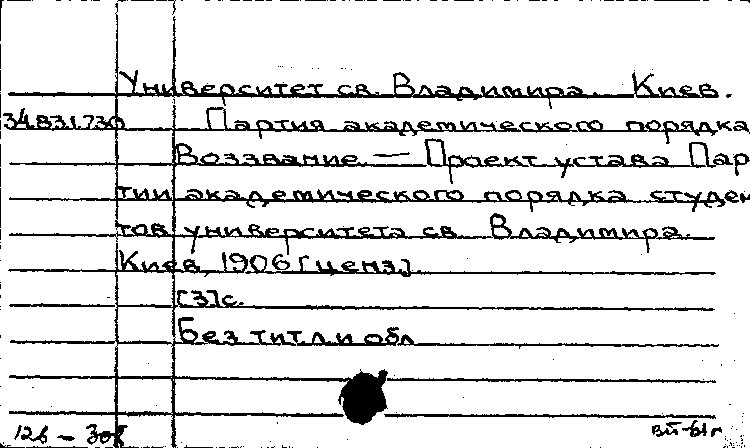 Университет св. Владимира. Киев.
34.83.1.730 Партия академического порядка
Воззвание. — Проект устава Пар
тии академического порядка студен
тов университета св. Владимира.
Киев, 1906 [ценз].
[3]с.
Без тит.л. и обл
126 —